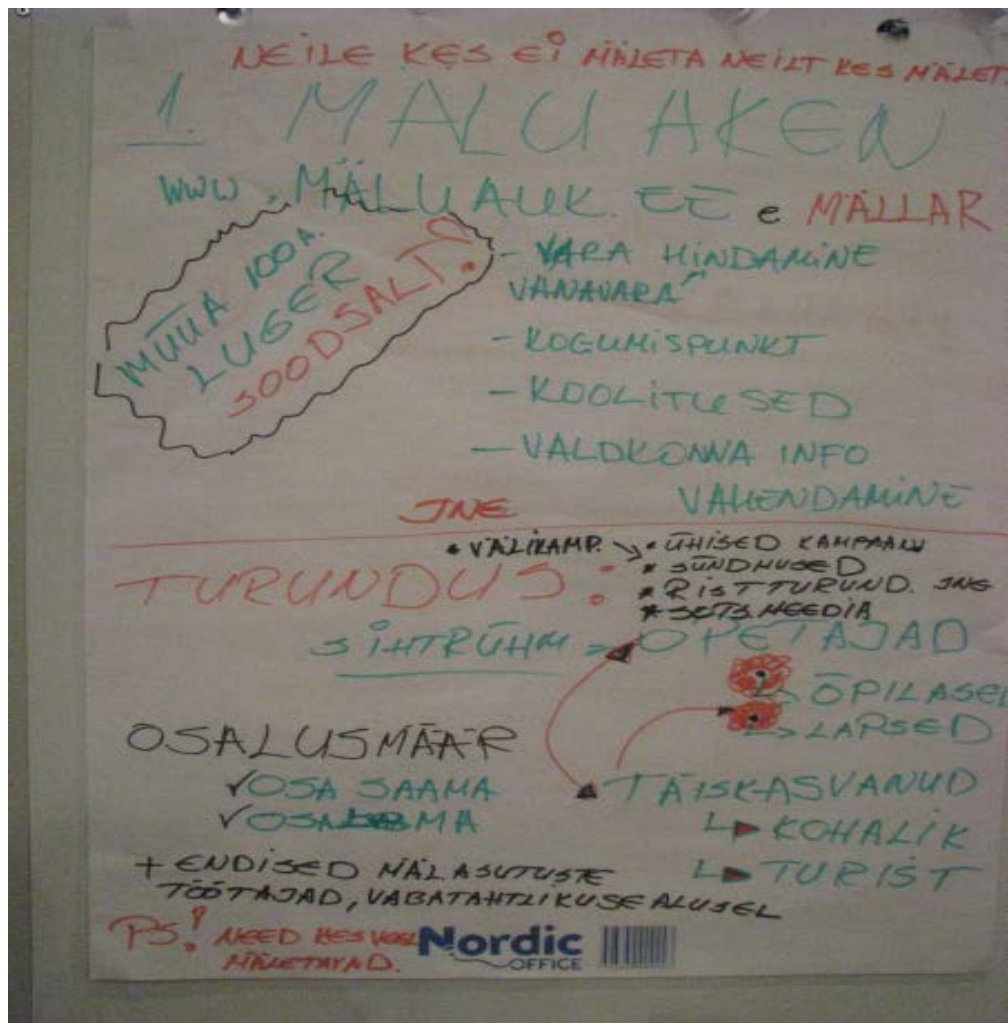 NEILE KES EI MÄLETA NEILT KES MÄLET.
1. MÄLU AKEN
WWW.MÄLUAUK.EE e MÄLLAR
MÜÜA 100 A.
LUGER
SOODSALT!
- VARA HINDAMINE
VANAVARA
- KOGUMISPUNKT
- KOOLITUSED
- VALDKONNA INFO
VAHENDAMINE
JNE
• VÄLIKAMP. → • ÜHISED KAMPAAN
* SÜNDMUSED
* RISTTURUND. JNE
* SOTS. MEEDIA
TURUNDUS:
SIHTRÜHM = ÕPETAJAD
↳ ÕPILASED
↳ LAPSED
TÄISKASVANUD
↳ KOHALIK
↳ TURIST
OSALUSMÄÄR
✓ OSA SAAMA
✓ OSALEMA
+ ENDISED MÄLASUTUSTE
TÖÖTAJAD, VABATAHTLIKUSE ALUSEL
PS! NEED KES VEEL
MÄLETAVAD.
Nordic
OFFICE